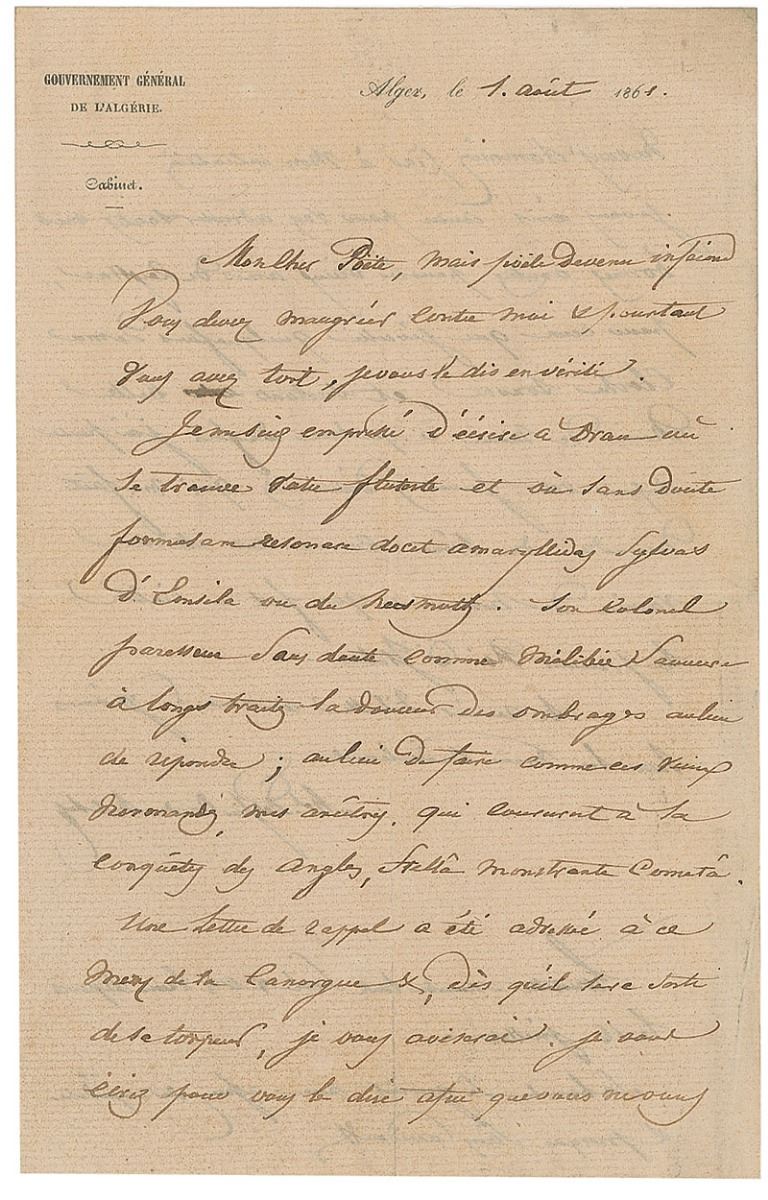 GOUVERNEMENT GÉNÉRAL
DE L'ALGÉRIE.
Cabinet.
Alger, le 1. août 1861.
Mon cher Poëte, mais poële devenu
Vous devez maugréer contre moi & pourtant
Vous avez tort, je vous le dis en vérité.
Je me suis empressé d'écrire à Oran où
se trouve votre flutiste et où sans doute
formosam resonare docet amaryllidas sylvas
d' ou du. Son Colonel
paresseux sans doute comme Mélibée savoure
à longs traits la douceur des ombrages au lieu
de répondre ; au lieu de faire comme ces vieux
Normands, mes ancêtres, qui coururent à la
conquêtes des Angles, Stellâ monstrante Cometâ.
Une lettre de rappel a été adressée à ce
de la Canorgue &, dès qu'il sera sorti
de sa torpeur, je vous aviserai. je vous
écris pour vous le dire afin que vous n'